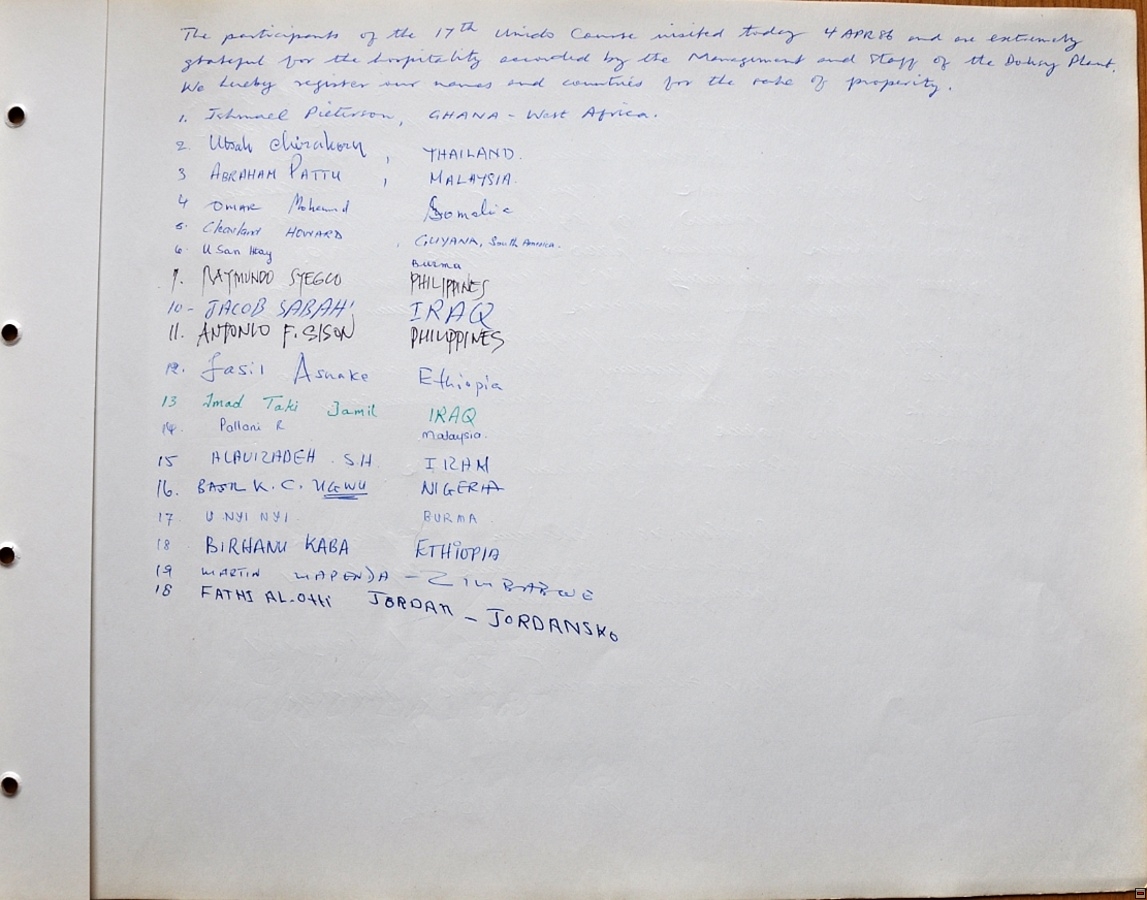 The participants of the 17th Unido Course visited today 4 APR 86 and are extremely
grateful for the hospitality accorded by the Management and Staff of the Plant.
We hereby register our names and countries for the sake of prosperity.
1. Ishmael Pieterson, GHANA - West Africa.
2. Utsah Chirakorn, THAILAND.
3 ABRAHAM PATTU, MALAYSIA.
4 OMAR Mohamed Somalia
5. HOWARD, GUYANA, South America.
6 U San Htay Burma
9. RAYMUNDO SYEGCO PHILIPPINES
10 - JACOB SABAHI IRAQ
11. ANTONIO F. SISON PHILIPPINES
12. Fasil Asnake Ethiopia
13 Imad Taki Jamil IRAQ
14. Pallani R Malaysia.
15 ALAVIZADEH. S.H. IRAN
16. BASIL K. C. UGWU NIGERIA
17 U NYI NYI BURMA
18 BIRHANU KABA ETHIOPIA
19 MARTIN MAPENDA - ZIMBABWE
18 FATHI AL-OTHI JORDAN - JORDANSKO